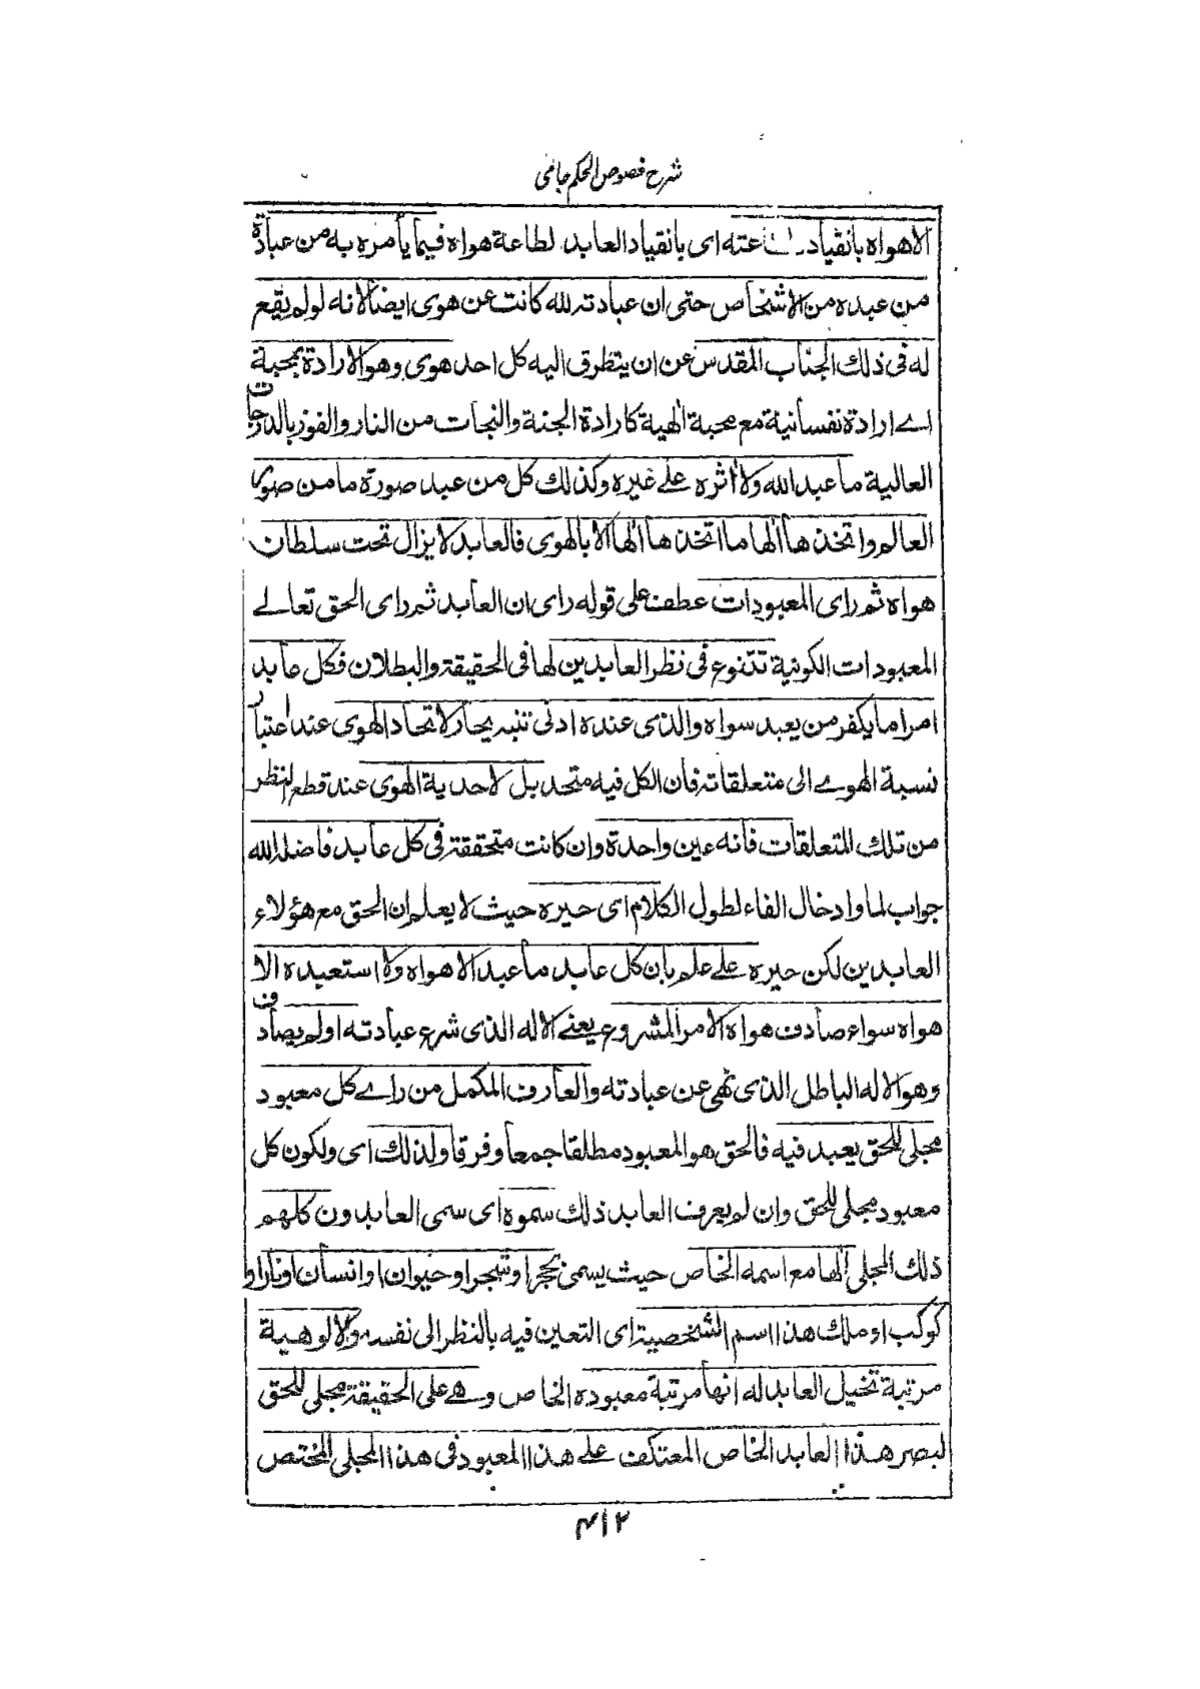 شرح فصوص الحکم جامی
الاهواه بانقياد لطاعته ای بانقياد العابد لطاعة هواه فيما يأمره به من عبادة
من عبده من الاشخاص حتى ان عبادته لله كانت عن هوى ايضا لانه لو لم يقع
له فى ذلك الجناب المقدس عن ان يتطرق اليه كل احد هوى وهو الارادة بمحبة
اے ارادة نفسانية مع محبة الٰهية كارادة الجنة والنجات من النار والفوز بالدرجات
العالية ما عبد الله ولا اثره علے غيره وكذلك كل من عبد صورة ما من صور
العالم واتخذها الٰها ما اتخذها الٰها الا بالهوى فالعابد لا يزال تحت سلطان
هواه ثم رای المعبودات عطف على قوله رای ان العابد ثم رای الحق تعالے
المعبودات الكونية تتنوع فى نظر العابدين لها فى الحقيقة والبطلان فكل عابد
امرا ما يكفر من يعبد سواه والذى عنده ادنى تنبه يحار لاتحاد الهوى عند اعتبار
نسبة الهوے الى متعلقاته فان الكل فيه متحد بل لاحدية الهوى عند قطع النظر
من تلك المتعلقات فانه عين واحدة وان كانت متحققة فى كل عابد فاضله الله
جواب لما وادخال الفاء لطول الكلام ای حيره حيث لا يعلم ان الحق مع هؤلاء
العابدين لكن حيره علے علم بان كل عابد ما عبد الا هواه ولا استعبده الا
هواه سواء صادف هواه الامر المشروع يعنے الاله الذى شرع عبادته او لم يصادف
وهو الاله الباطل الذى نهى عن عبادته والعارف المكمل من راے كل معبود
مجلى للحق يعبد فيه فالحق هو المعبود مطلقا جمعا وفرقا ولذلك ای ولكون كل
معبود مجلى للحق وان لم يعرف العابد ذلك سموه ای سمى العابدون كلهم
ذلك المجلى الٰها مع اسمه الخاص حيث يسمى بحجر او شجر او حيوان او انسان او نار او
كوكب او ملك هذا اسم الشخصية ای التعين فيه بالنظر الى نفسه والالوهية
مرتبة تخيل العابد له انها مرتبة معبوده الخاص وهے على الحقيقة مجلى للحق
لبصر هذا العابد الخاص المعتكف علے هذا المعبود فى هذا المجلى المختص
۴۱۲